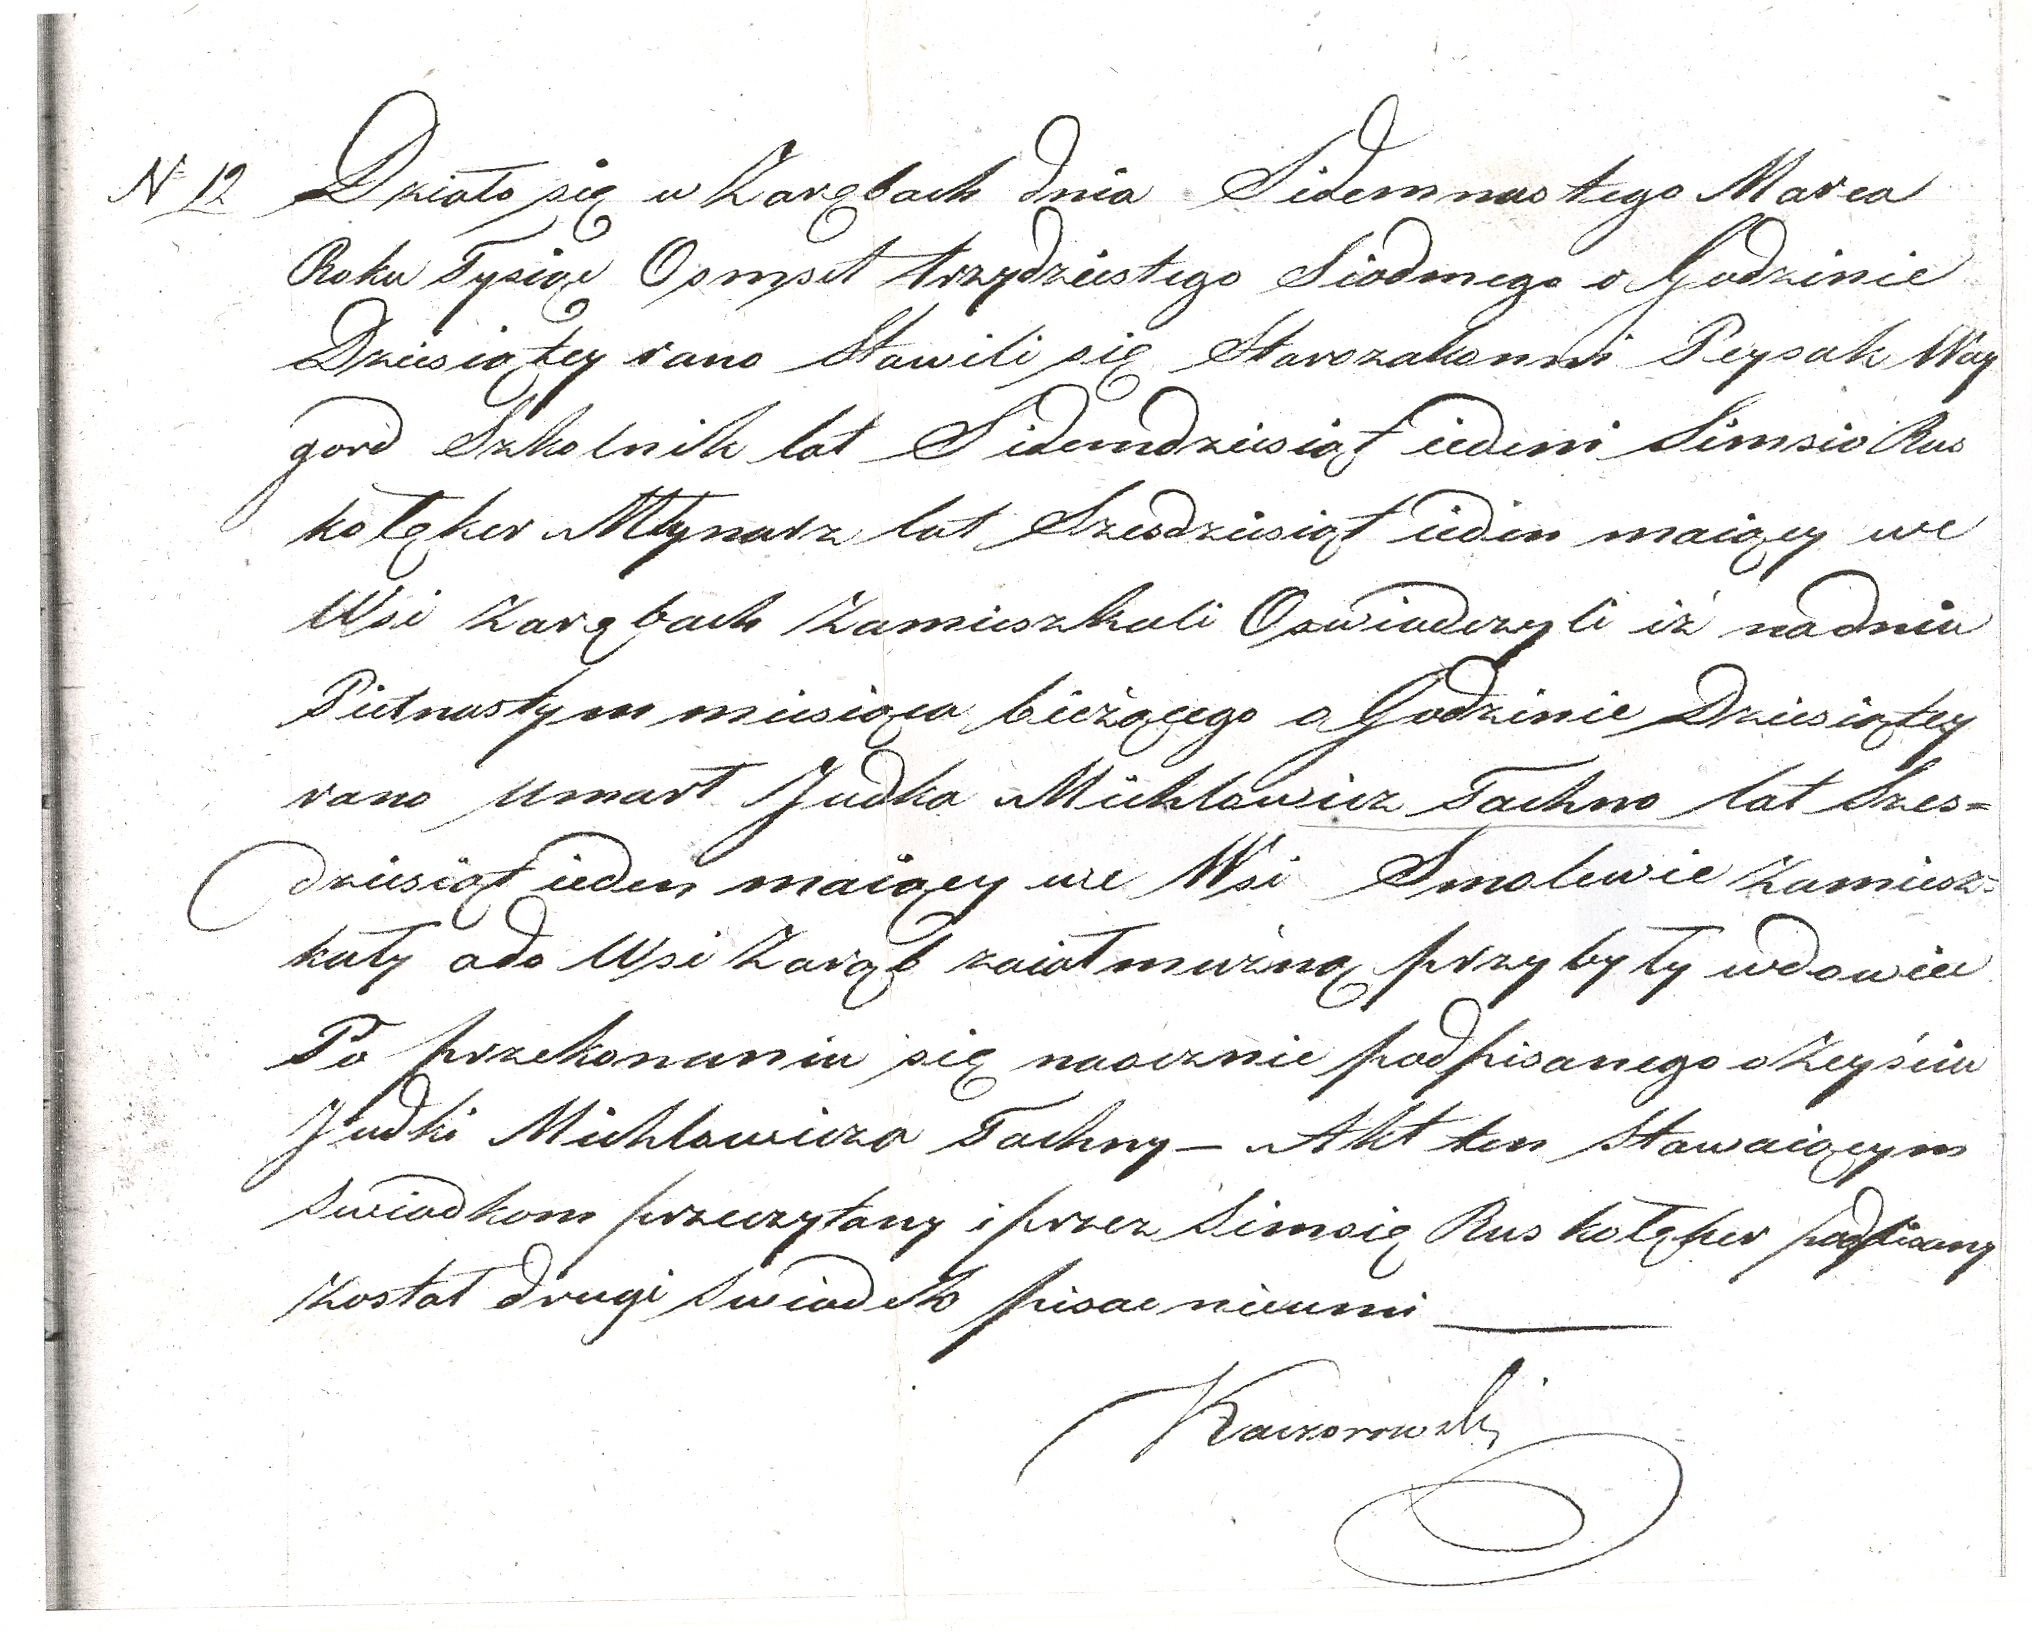 N 12 Działo się w Zarębach dnia Sidemnastego Marca
Roku Tysiąc Osmset trzydziestego Siodmego o Godzinie
Dziesiątey rano Stawili się Starozakonni Peysak Way
gord Szkolnik lat Sidemdziesiąt ieden i Simsio Rus
kołęker Młynarz lat Szesdziesiąt ieden maiący we
Wsi Zarębach Zamieszkali Oswiadczyli iż nadniu
Pietnastym miesiąca bieżącego o Godzinie Dziesiątey
rano umart Judka Michlowicz Tachna lat Szes=
dziesiąt ieden maiący we Wsi Smolewie Zamiesz=
kały ado Wsi Zaręb przybyły wdowiec
Po przekonaniu się naocznie podpisanego o Zeyściu
Judki Michlowicza Tachny – Akt ten Stawaiącym
Swiadkom przeczytany i przez Simsię Rus kołęker podpisany
Został drugi Swiadek pisac nieumi
Kaczorowski